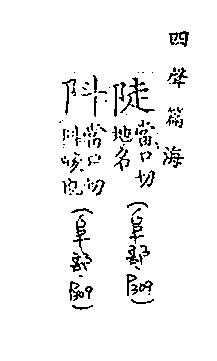 四聲篇海
陡當口切地名(阜部P309)
阧當口切阧峻也(阜部P309)